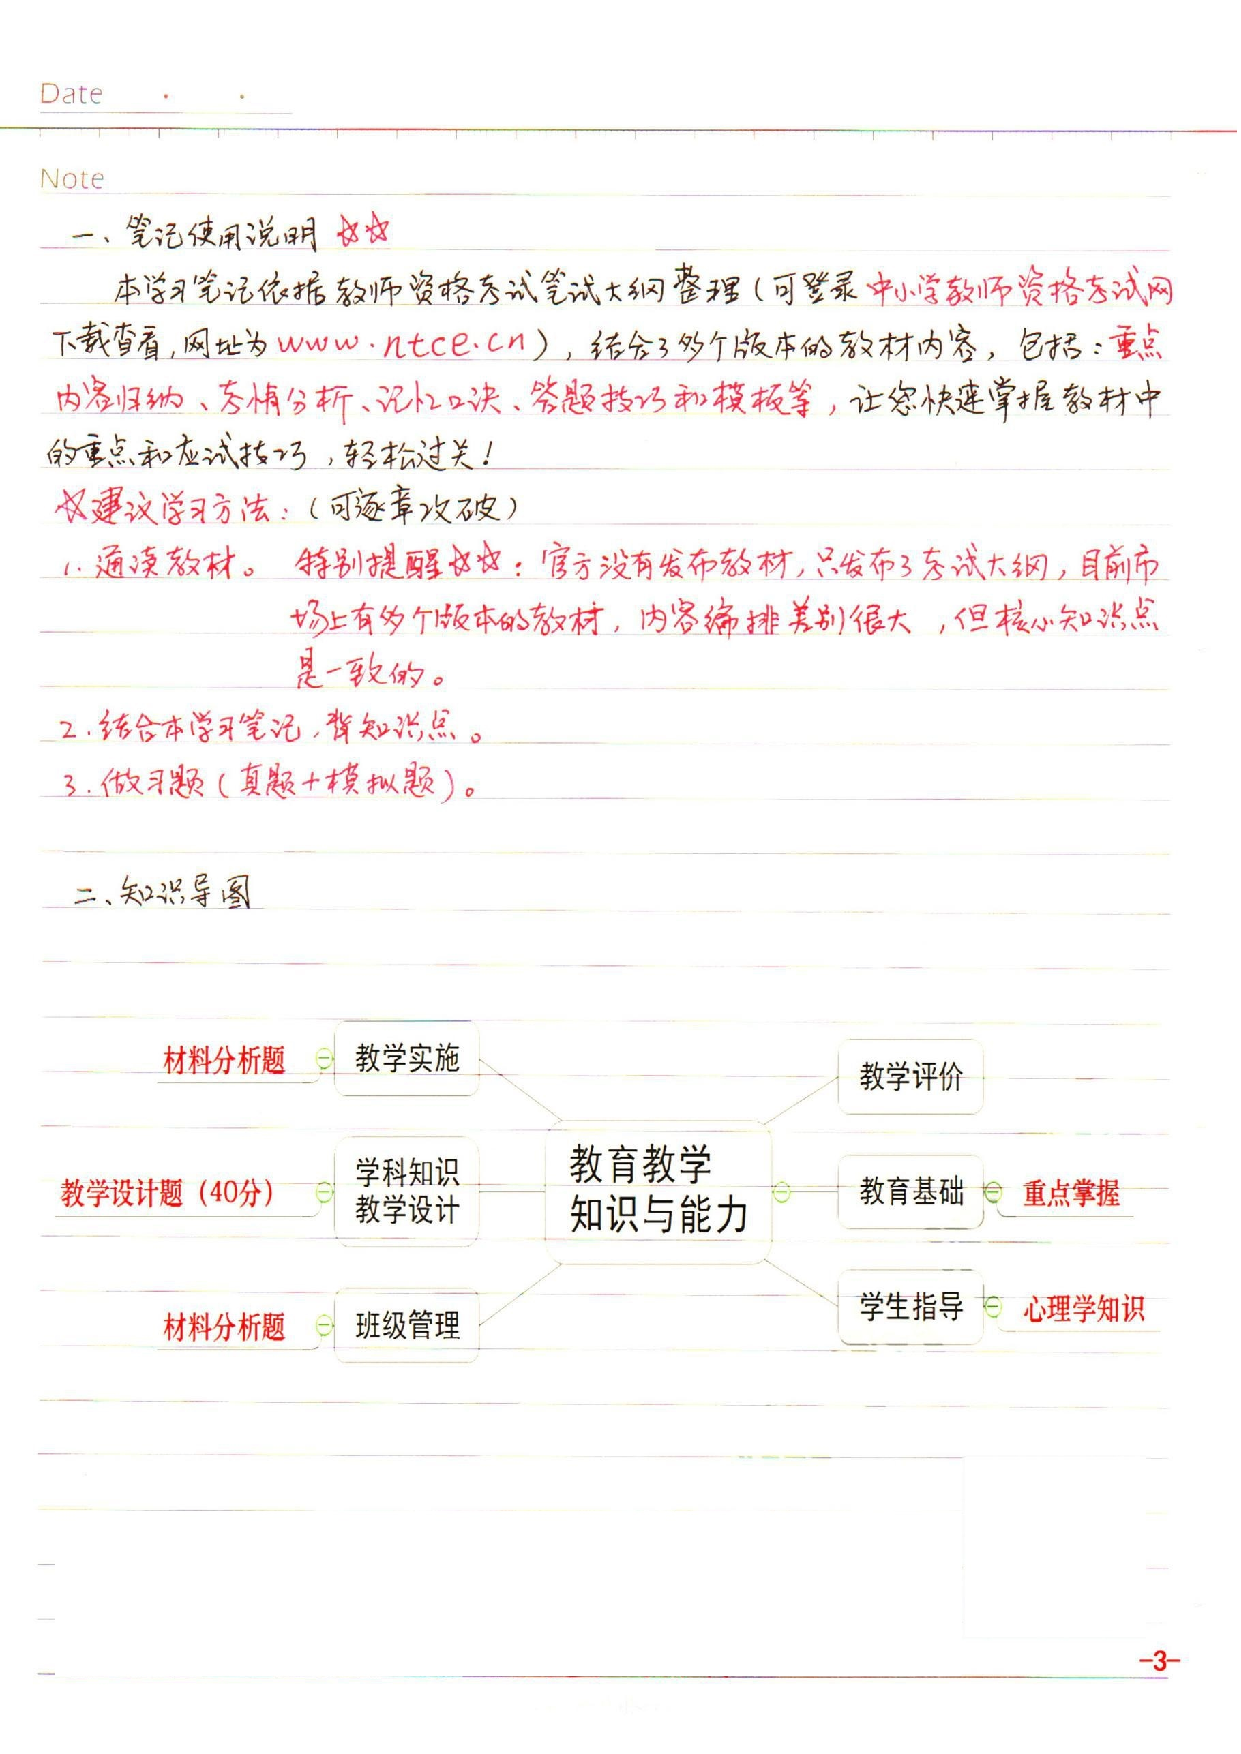 Date
Note
一、笔记使用说明 ☆☆
本学习笔记依据教师资格考试笔试大纲整理(可登录中小学教师资格考试网
下载查看,网址为www.ntce.cn),结合了多个版本的教材内容,包括:重点
内容归纳、考情分析、记忆口诀、答题技巧和模板等,让您快速掌握教材中
的重点和应试技巧,轻松过关!
☆建议学习方法:(可逐章攻破)
1.通读教材。 特别提醒☆☆:官方没有发布教材,只发布了考试大纲,目前市
场上有多个版本的教材,内容编排差别很大,但核心知识点
是一致的。
2.结合本学习笔记,背知识点。
3.做习题(真题+模拟题)。
二、知识导图
材料分析题
教学实施
教学设计题(40分)
学科知识
教学设计
材料分析题
班级管理
教育教学
知识与能力
教学评价
教育基础
重点掌握
学生指导
心理学知识
-3-